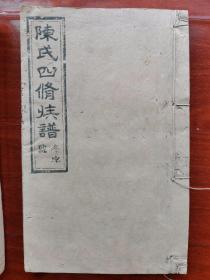 陳氏四脩族譜